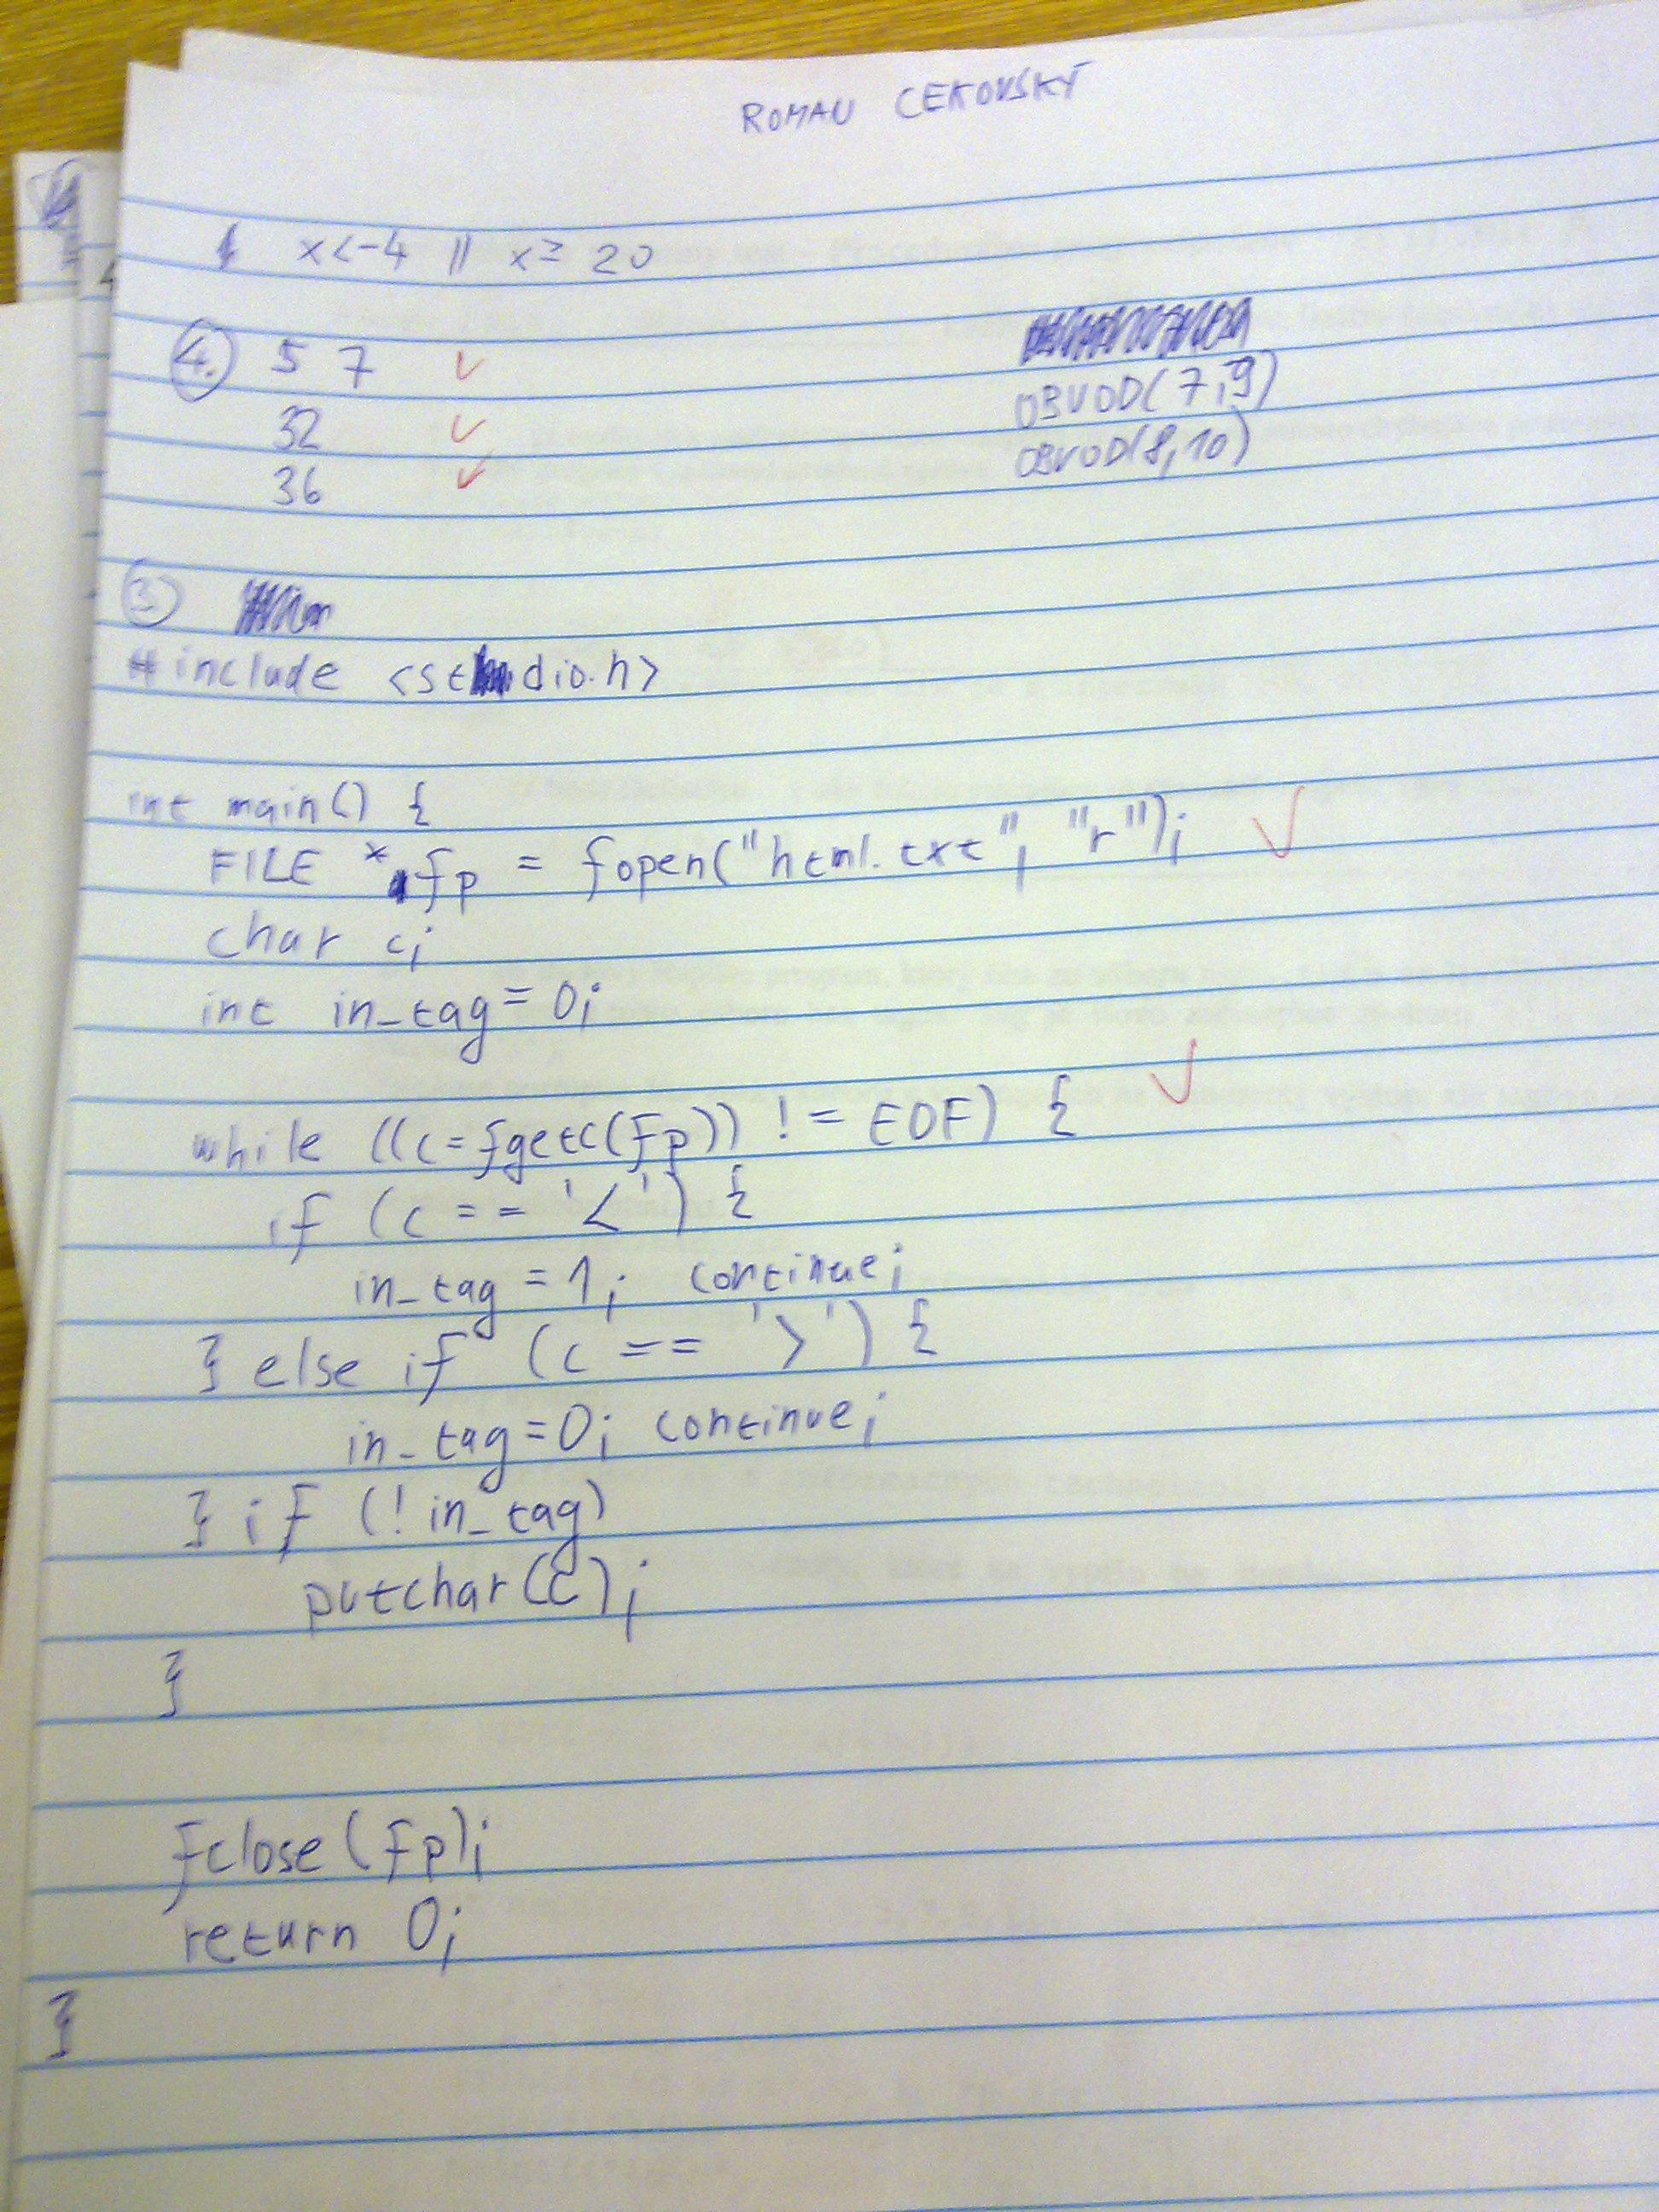 ROMAN CEKOVSKÝ
x<-4 || x≥ 20
4. 5 7
32
36
OBVOD(7,9)
OBVOD(8,10)
3.
#include <stdio.h>
int main() {
FILE *fp = fopen("html.txt", "r");
char c;
int in_tag = 0;
while ((c=fgetc(fp)) != EOF) {
if (c == '<') {
in_tag = 1; continue;
} else if (c == '>') {
in_tag=0; continue;
} if (!in_tag)
putchar(c);
}
fclose(fp);
return 0;
}